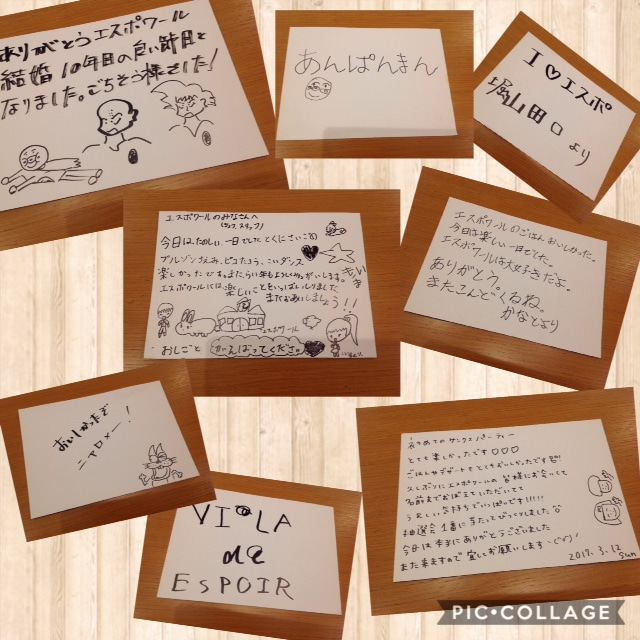 ありがとうエスポワール
結婚10年目の良い節目と
なりました。ごちそう様でした!
あんぱんまん
I ♡ エスポ
堀山田口より
エスポワールのみなさんへ
今日はたのしい一日でした とくにさいごの
ブルゾンちえみ、
ダンス
楽しかったです。またらい年もよろしくおねがいします。
エスポワールには楽しいこともいっぱいありました
またおあいしましょう!!
エスポワール
おしごと がんばってくださいね
エスポワールのごはん おいしかった。
今日は楽しい一日でした。
エスポワールは大好きだよ。
ありがとう。
またこんどくるね。
かなとより
おいしかったぞ
ニャロメー!
VIOLA
de
ESPOIR
初めてのサンクスパーティー
とても楽しかったです♡♡♡
ごはんもデザートもとてもおいしかったです
久しぶりにエスポワールの皆様にお会いして
名前までおぼえていただいてて
うれしい気持ちでいっぱいです!!!!
抽選会1番に当たってびっくりしました
今日は本当にありがとうございました
また来ますので宜しくお願いします
2017.3.12
sun
PIC•COLLAGE